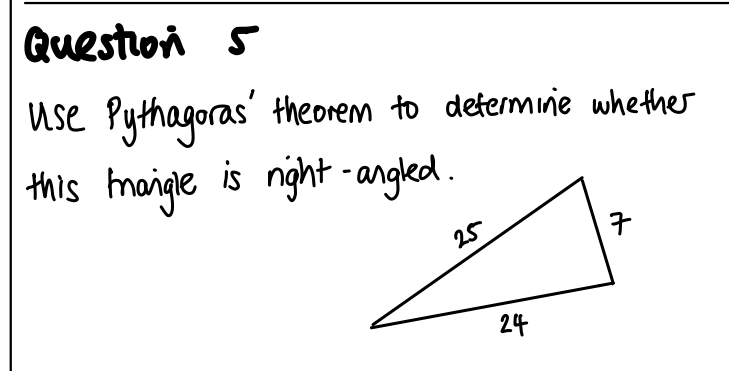 Question 5
Use Pythagoras' theorem to determine whether
this triangle is right-angled.
25
7
24